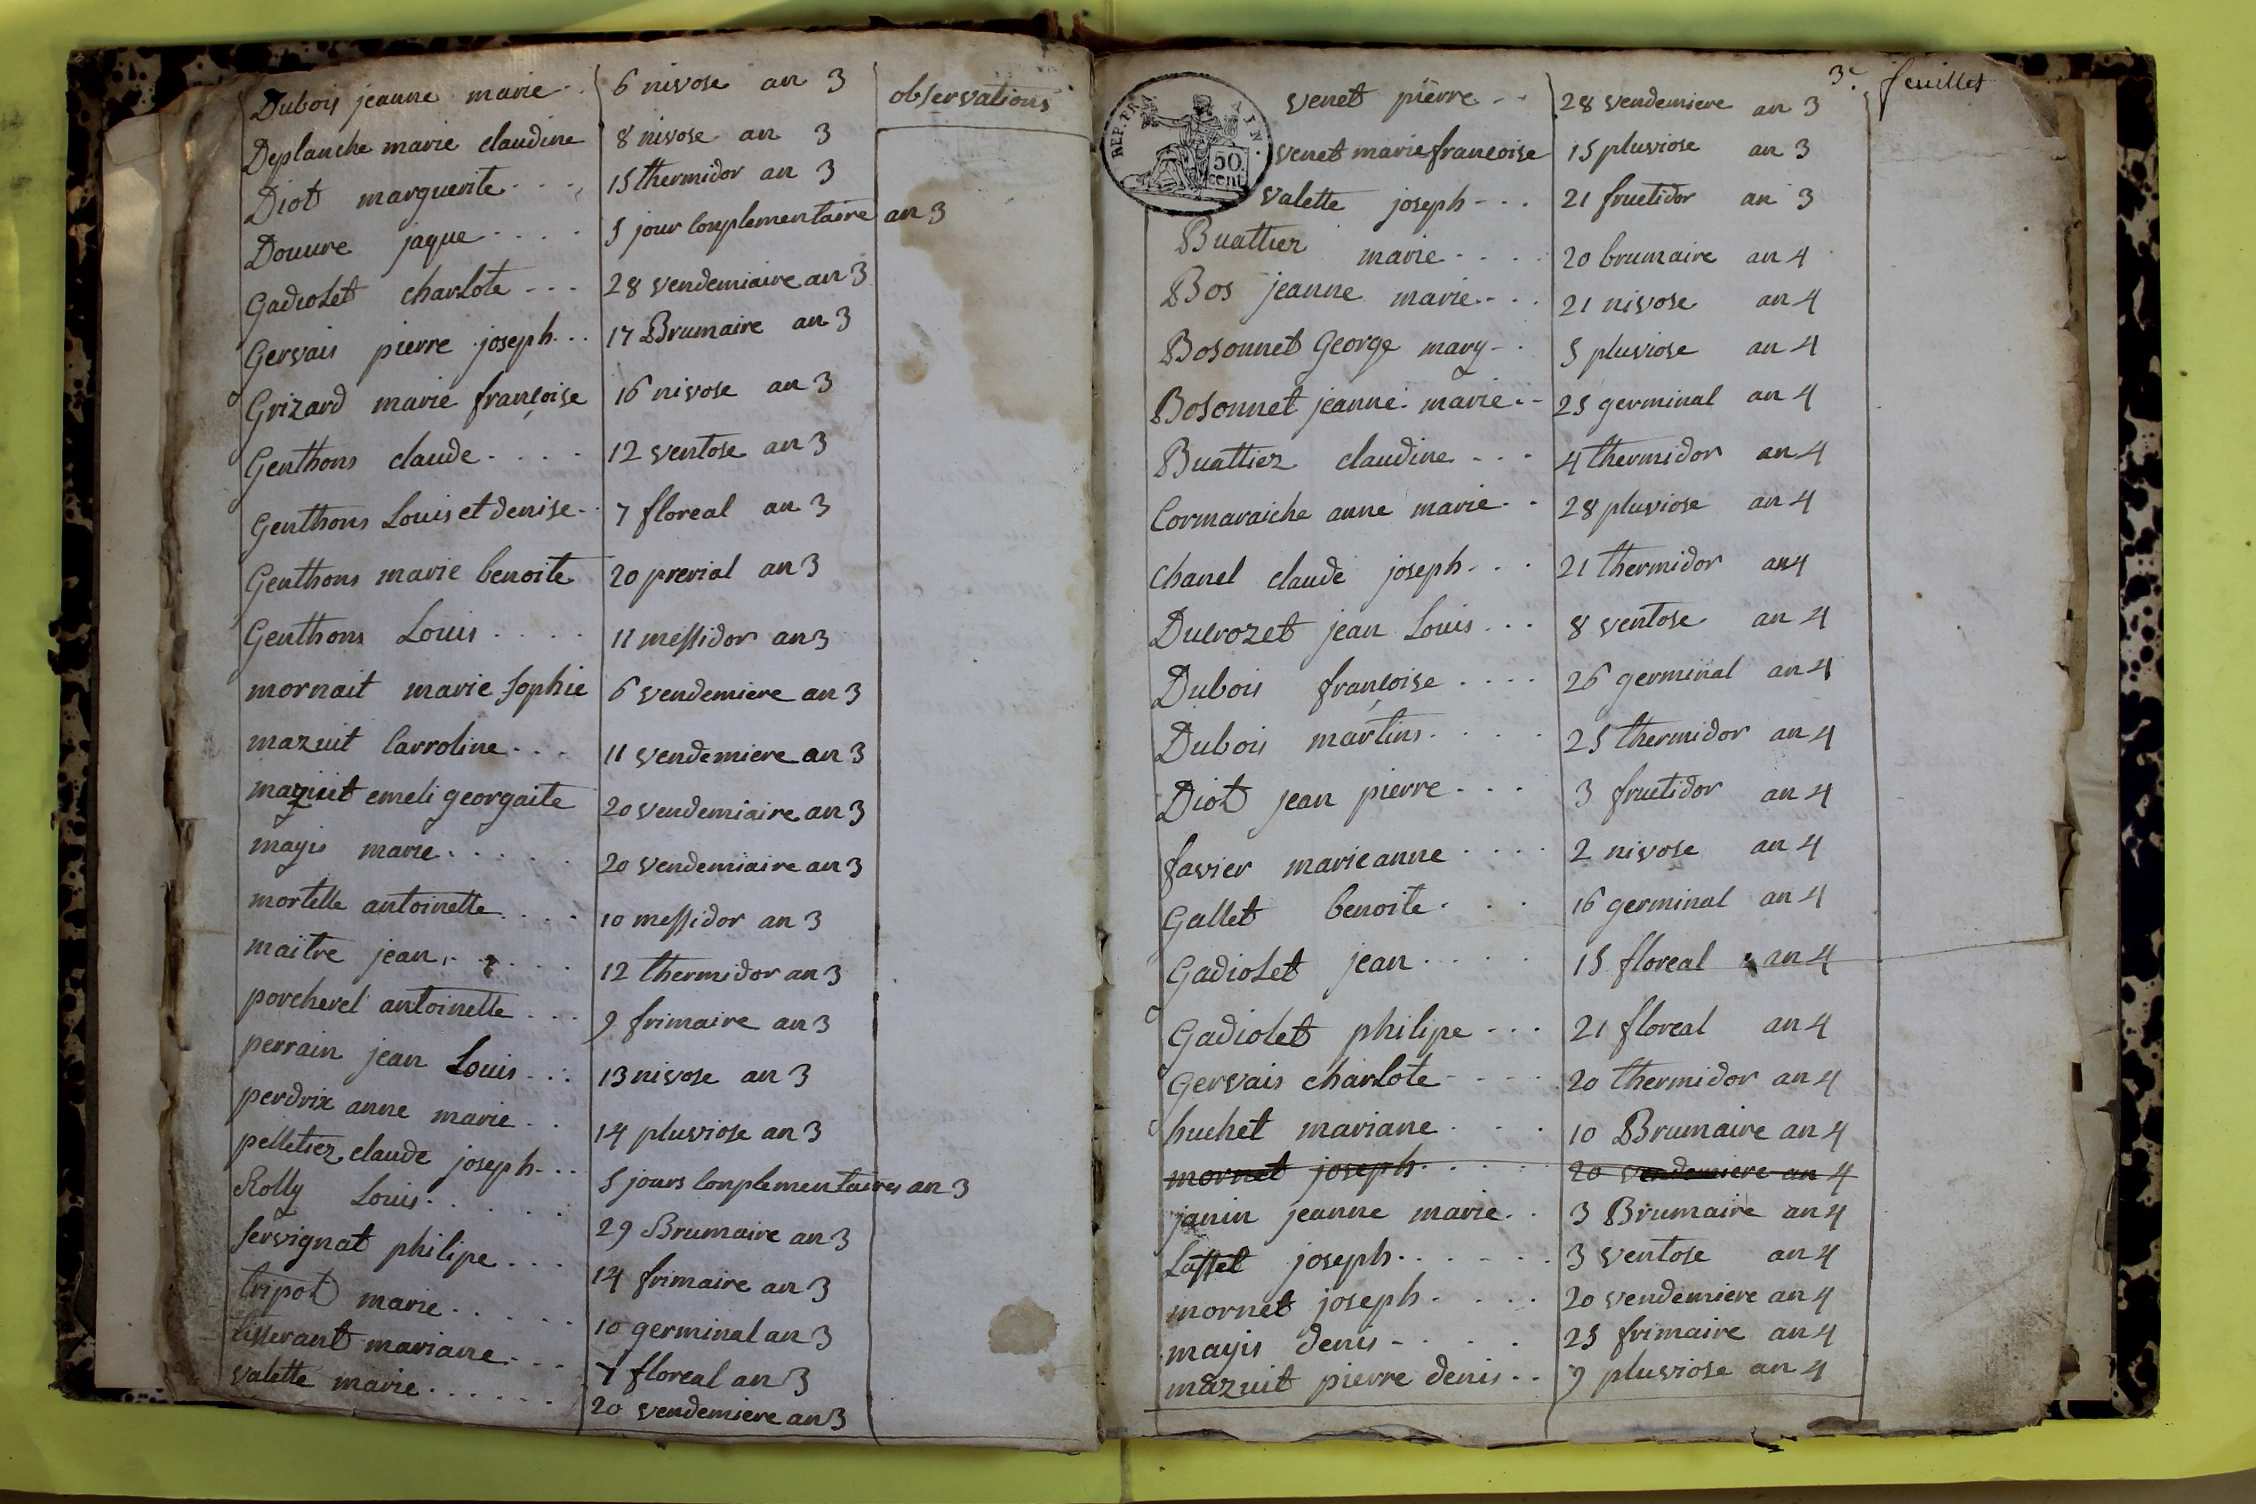 Dubois jeanne marie.. 6 nivose an 3 observations
Deplanche marie claudine 8 nivose an 3
Diot marguerite.... 15 thermidor an 3
Douvre jaque.... 5 jour Conplementaire an 3
Gadiolet charlote... 28 vendemiaire an 3
Gervais pierre joseph... 17 Brumaire an 3
Grizard marie françoise 16 nivose an 3
Genthons claude.... 12 ventose an 3
Genthons Louis et denise.. 7 floreal an 3
Genthons marie benoite 20 prerial an 3
Genthons Louis.... 11 messidor an 3
mornait marie Sophie 6 vendemiere an 3
mazuit Carroline... 11 vendemiere an 3
mazuit emeli georgaite 20 vendemiaire an 3
mayis marie..... 20 vendemiaire an 3
mortelle antoinette.... 10 messidor an 3
maitre jean...... 12 thermidor an 3
porcherel antoinette... 9 frimaire an 3
perrain jean Louis... 13 nivose an 3
perdrix anne marie.. 14 pluviose an 3
pelletiez claude joseph... 5 jours Conplementaires an 3
Rolly Louis..... 29 Brumaire an 3
Servignat philipe... 14 frimaire an 3
tripot marie..... 10 germinal an 3
tisserant mariane... 7 floreal an 3
valette marie...... 20 vendemiere an 3
3e. feuillet
REP. FRA
50 cent
venet pierre.. 28 vendemiere an 3
venet marie francoise 15 pluviose an 3
valette joseph... 21 fructidor an 3
Buattiez marie.... 20 brumaire an 4
Bos jeanne marie... 21 nivose an 4
Bosonnet George mary.. 5 pluviose an 4
Bosonnet jeanne marie.. 25 germinal an 4
Buattiez claudine... 4 thermidor an 4
Cormaraiche anne marie.. 28 pluviose an 4
Chanel claude joseph... 21 thermidor an 4
Ducrozet jean Louis... 8 ventose an 4
Dubois françoise.... 26 germinal an 4
Dubois martins.... 25 thermidor an 4
Diot jean pierre... 3 fructidor an 4
favier marie anne.... 2 nivose an 4
Gallet benoite... 16 germinal an 4
Gadiolet jean.... 15 floreal an 4
Gadiolet philipe... 21 floreal an 4
Gervais charlote.... 20 thermidor an 4
huchet mariane... 10 Brumaire an 4
mornet joseph..... 20 vendemiere an 4
janin jeanne marie.. 3 Brumaire an 4
Lassel joseph...... 3 ventose an 4
mornet joseph.... 20 vendemiere an 4
mayis denis.... 25 frimaire an 4
mazuit pierre denis.. 9 pluviose an 4